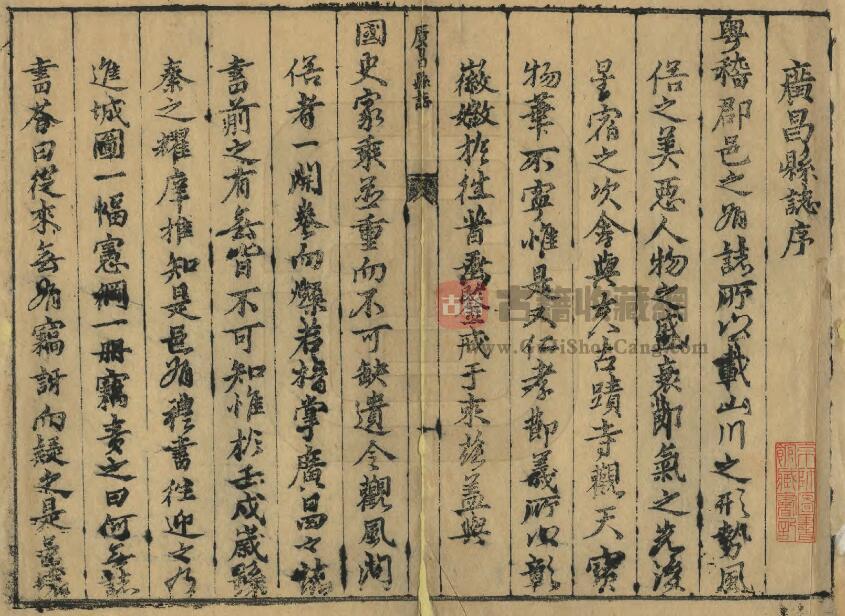 廣昌縣誌序
粵稽郡邑之有誌所以載山川之形勢風
俗之美惡人物之盛衰節氣之先後
星宿之次舍與夫古蹟寺觀天寶
物華不寧惟是又仁孝節義所以彰
徽媺於往昔鑒戒于來茲蓋與
廣昌縣誌
國史家乘並重而不可缺遺令觀風問
俗者一開卷而燦若指掌廣昌之誌
書前之有無皆不可知惟於壬戌歲
秦之耀摩推知是邑有禮書往迎之
進城圖一幅憲綱一冊竊責之曰何無誌
書答曰從來無有竊訝而疑之是邑
古籍收藏網
www.GuJiShouCang.com